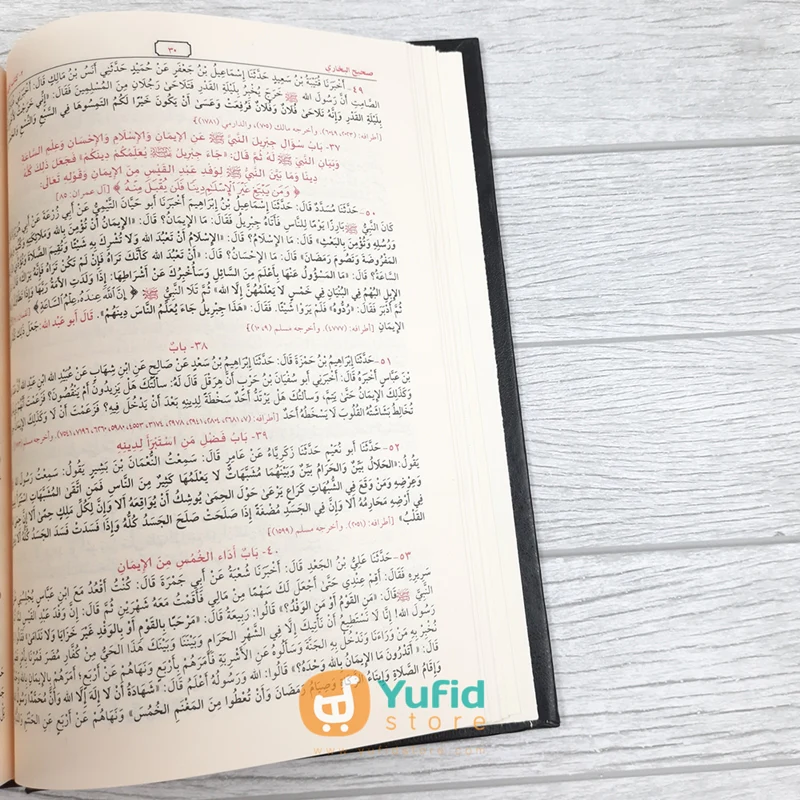 ٣٠
صحيح البخاري
٤٩- أَخْبَرَنَا قُتَيْبَةُ بْنُ سَعِيدٍ حَدَّثَنَا إِسْمَاعِيلُ بْنُ جَعْفَرٍ عَنْ حُمَيْدٍ حَدَّثَنِي أَنَسُ بْنُ مَالِكٍ قَالَ: أَخْبَرَنِي
الصَّامِتِ أَنَّ رَسُولَ الله ﷺ خَرَجَ يُخْبِرُ بِلَيْلَةِ الْقَدْرِ فَتَلَاحَى رَجُلَانِ مِنَ الْمُسْلِمِينَ فَقَالَ: «إِنِّي خَرَجْتُ
بِلَيْلَةِ الْقَدْرِ وَإِنَّهُ تَلَاحَى فُلَانٌ وَفُلَانٌ فَرُفِعَتْ وَعَسَى أَنْ يَكُونَ خَيْرًا لَكُمُ الْتَمِسُوهَا فِي السَّبْعِ وَالتِّسْعِ
[أطرافه: ٢٠٢٣، ٦٠٤٩. وأخرجه مالك (٧٠٥)، والدارمي (١٧٨١)]
٣٧- بَابُ سُؤَالِ جِبْرِيلَ النَّبِيَّ ﷺ عَنِ الْإِيمَانِ وَالْإِسْلَامِ وَالْإِحْسَانِ وَعِلْمِ السَّاعَةِ
وَبَيَانِ النَّبِيِّ ﷺ لَهُ ثُمَّ قَالَ: «جَاءَ جِبْرِيلُ يُعَلِّمُكُمْ دِينَكُمْ» فَجَعَلَ ذَلِكَ كُلَّهُ
دِينًا وَمَا بَيَّنَ النَّبِيُّ ﷺ لِوَفْدِ عَبْدِ الْقَيْسِ مِنَ الْإِيمَانِ وَقَوْلِهِ تَعَالَى:
﴿ وَمَن يَبْتَغِ غَيْرَ الْإِسْلَٰمِ دِينًا فَلَن يُقْبَلَ مِنْهُ ﴾ [آل عمران: ٨٥]
٥٠- حَدَّثَنَا مُسَدَّدٌ قَالَ: حَدَّثَنَا إِسْمَاعِيلُ بْنُ إِبْرَاهِيمَ أَخْبَرَنَا أَبُو حَيَّانَ التَّيْمِيُّ عَنْ أَبِي زُرْعَةَ عَنْ أَبِي
كَانَ النَّبِيُّ ﷺ بَارِزًا يَوْمًا لِلنَّاسِ فَأَتَاهُ جِبْرِيلُ فَقَالَ: مَا الْإِيمَانُ؟ قَالَ: «الْإِيمَانُ أَنْ تُؤْمِنَ بِالله وَمَلَائِكَتِهِ
وَرُسُلِهِ وَتُؤْمِنَ بِالْبَعْثِ» قَالَ: مَا الْإِسْلَامُ؟ قَالَ: «الْإِسْلَامُ أَنْ تَعْبُدَ الله وَلَا تُشْرِكَ بِهِ شَيْئًا وَتُقِيمَ
الْمَفْرُوضَةَ وَتَصُومَ رَمَضَانَ» قَالَ: مَا الْإِحْسَانُ؟ قَالَ: «أَنْ تَعْبُدَ الله كَأَنَّكَ تَرَاهُ فَإِنْ لَمْ تَكُنْ تَرَاهُ فَإِنَّهُ
السَّاعَةُ؟ قَالَ: «مَا الْمَسْؤُولُ عَنْهَا بِأَعْلَمَ مِنَ السَّائِلِ وَسَأُخْبِرُكَ عَنْ أَشْرَاطِهَا: إِذَا وَلَدَتِ الْأَمَةُ رَبَّهَا
الْإِبِلِ الْبُهْمُ فِي الْبُنْيَانِ فِي خَمْسٍ لَا يَعْلَمُهُنَّ إِلَّا الله» ثُمَّ تَلَا النَّبِيُّ ﷺ ﴿ إِنَّ اللَّهَ عِندَهُۥ عِلْمُ السَّاعَةِ ﴾
ثُمَّ أَدْبَرَ فَقَالَ: «رُدُّوهُ» فَلَمْ يَرَوْا شَيْئًا. فَقَالَ: «هَذَا جِبْرِيلُ جَاءَ يُعَلِّمُ النَّاسَ دِينَهُمْ». قَالَ أَبُو عَبْدِ الله: جَعَلَ
الْإِيمَانِ [أطرافه: (٤٧٧٧). وأخرجه مسلم (١٠٩)]
٣٨- بَابٌ
٥١- حَدَّثَنَا إِبْرَاهِيمُ بْنُ حَمْزَةَ قَالَ: حَدَّثَنَا إِبْرَاهِيمُ بْنُ سَعْدٍ عَنْ صَالِحٍ عَنِ ابْنِ شِهَابٍ عَنْ عُبَيْدِ الله ابْنِ عَبْدِ
بْنَ عَبَّاسٍ أَخْبَرَهُ قَالَ: أَخْبَرَنِي أَبُو سُفْيَانَ بْنُ حَرْبٍ أَنَّ هِرَقْلَ قَالَ لَهُ: سَأَلْتُكَ هَلْ يَزِيدُونَ أَمْ يَنْقُصُونَ؟ فَزَعَمْتَ
وَكَذَلِكَ الْإِيمَانُ حَتَّى يَتِمَّ، وَسَأَلْتُكَ هَلْ يَرْتَدُّ أَحَدٌ سَخْطَةً لِدِينِهِ بَعْدَ أَنْ يَدْخُلَ فِيهِ؟ فَزَعَمْتَ أَنْ لَا وَكَذَلِكَ
تُخَالِطُ بَشَاشَتُهُ الْقُلُوبَ لَا يَسْخَطُهُ أَحَدٌ
٣٩- بَابُ فَضْلِ مَنِ اسْتَبْرَأَ لِدِينِهِ
٥٢- حَدَّثَنَا أَبُو نُعَيْمٍ حَدَّثَنَا زَكَرِيَّاءُ عَنْ عَامِرٍ قَالَ: سَمِعْتُ النُّعْمَانَ بْنَ بَشِيرٍ يَقُولُ: سَمِعْتُ رَسُولَ
يَقُولُ: «الْحَلَالُ بَيِّنٌ وَالْحَرَامُ بَيِّنٌ وَبَيْنَهُمَا مُشَبَّهَاتٌ لَا يَعْلَمُهَا كَثِيرٌ مِنَ النَّاسِ فَمَنِ اتَّقَى الْمُشَبَّهَاتِ
وَعِرْضِهِ وَمَنْ وَقَعَ فِي الشُّبُهَاتِ كَرَاعٍ يَرْعَى حَوْلَ الْحِمَى يُوشِكُ أَنْ يُوَاقِعَهُ أَلَا وَإِنَّ لِكُلِّ مَلِكٍ حِمًى
فِي أَرْضِهِ مَحَارِمُهُ أَلَا وَإِنَّ فِي الْجَسَدِ مُضْغَةً إِذَا صَلَحَتْ صَلَحَ الْجَسَدُ كُلُّهُ وَإِذَا فَسَدَتْ فَسَدَ الْجَسَدُ كُلُّهُ
الْقَلْبُ» [أطرافه: (٢٠٥١). وأخرجه مسلم (١٥٩٩)]
٤٠- بَابُ أَدَاءِ الْخُمُسِ مِنَ الْإِيمَانِ
٥٣- حَدَّثَنَا عَلِيُّ بْنُ الْجَعْدِ قَالَ: أَخْبَرَنَا شُعْبَةُ عَنْ أَبِي جَمْرَةَ قَالَ: كُنْتُ أَقْعُدُ مَعَ ابْنِ عَبَّاسٍ
سَرِيرِهِ فَقَالَ: أَقِمْ عِنْدِي حَتَّى أَجْعَلَ لَكَ سَهْمًا مِنْ مَالِي فَأَقَمْتُ مَعَهُ شَهْرَيْنِ ثُمَّ قَالَ: إِنَّ وَفْدَ عَبْدِ الْقَيْسِ
النَّبِيَّ ﷺ قَالَ: «مَنِ الْقَوْمُ أَوْ مَنِ الْوَفْدُ؟» قَالُوا: رَبِيعَةُ قَالَ: «مَرْحَبًا بِالْقَوْمِ أَوْ بِالْوَفْدِ غَيْرَ خَزَايَا وَلَا نَدَامَى»
رَسُولَ الله! إِنَّا لَا نَسْتَطِيعُ أَنْ نَأْتِيَكَ إِلَّا فِي الشَّهْرِ الْحَرَامِ وَبَيْنَنَا وَبَيْنَكَ هَذَا الْحَيُّ مِنْ كُفَّارِ مُضَرَ
نُخْبِرْ بِهِ مَنْ وَرَاءَنَا وَنَدْخُلْ بِهِ الْجَنَّةَ وَسَأَلُوهُ عَنِ الْأَشْرِبَةِ فَأَمَرَهُمْ بِأَرْبَعٍ وَنَهَاهُمْ عَنْ أَرْبَعٍ؛ أَمَرَهُمْ بِالْإِيمَانِ
قَالَ: «أَتَدْرُونَ مَا الْإِيمَانُ بِالله وَحْدَهُ؟» قَالُوا: الله وَرَسُولُهُ أَعْلَمُ قَالَ: «شَهَادَةُ أَنْ لَا إِلَهَ إِلَّا الله وَأَنَّ مُحَمَّدًا
وَإِقَامُ الصَّلَاةِ وَإِيتَاءُ وَصِيَامُ رَمَضَانَ وَأَنْ تُعْطُوا مِنَ الْمَغْنَمِ الْخُمُسَ» وَنَهَاهُمْ عَنْ أَرْبَعٍ عَنِ الْحَنْتَمِ
Yufid
store